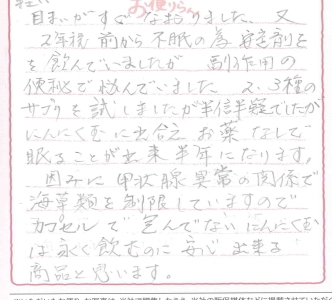 お便りらん
目まいがすぐなおりました。又
2年程前から不眠の為安定剤を
を飲んでいましたが 副作用の
便秘で悩んでいました 2、3種の
サプリを試しましたが半信半疑でしたが
にんにく玉に出合え お薬なしで
眠ることが出来半年になります。
因みに甲状腺異常の関係で
海草類を制限していますので
カプセルで包んでないにんにく玉
は永く飲むのに安心出来る
商品と思います。